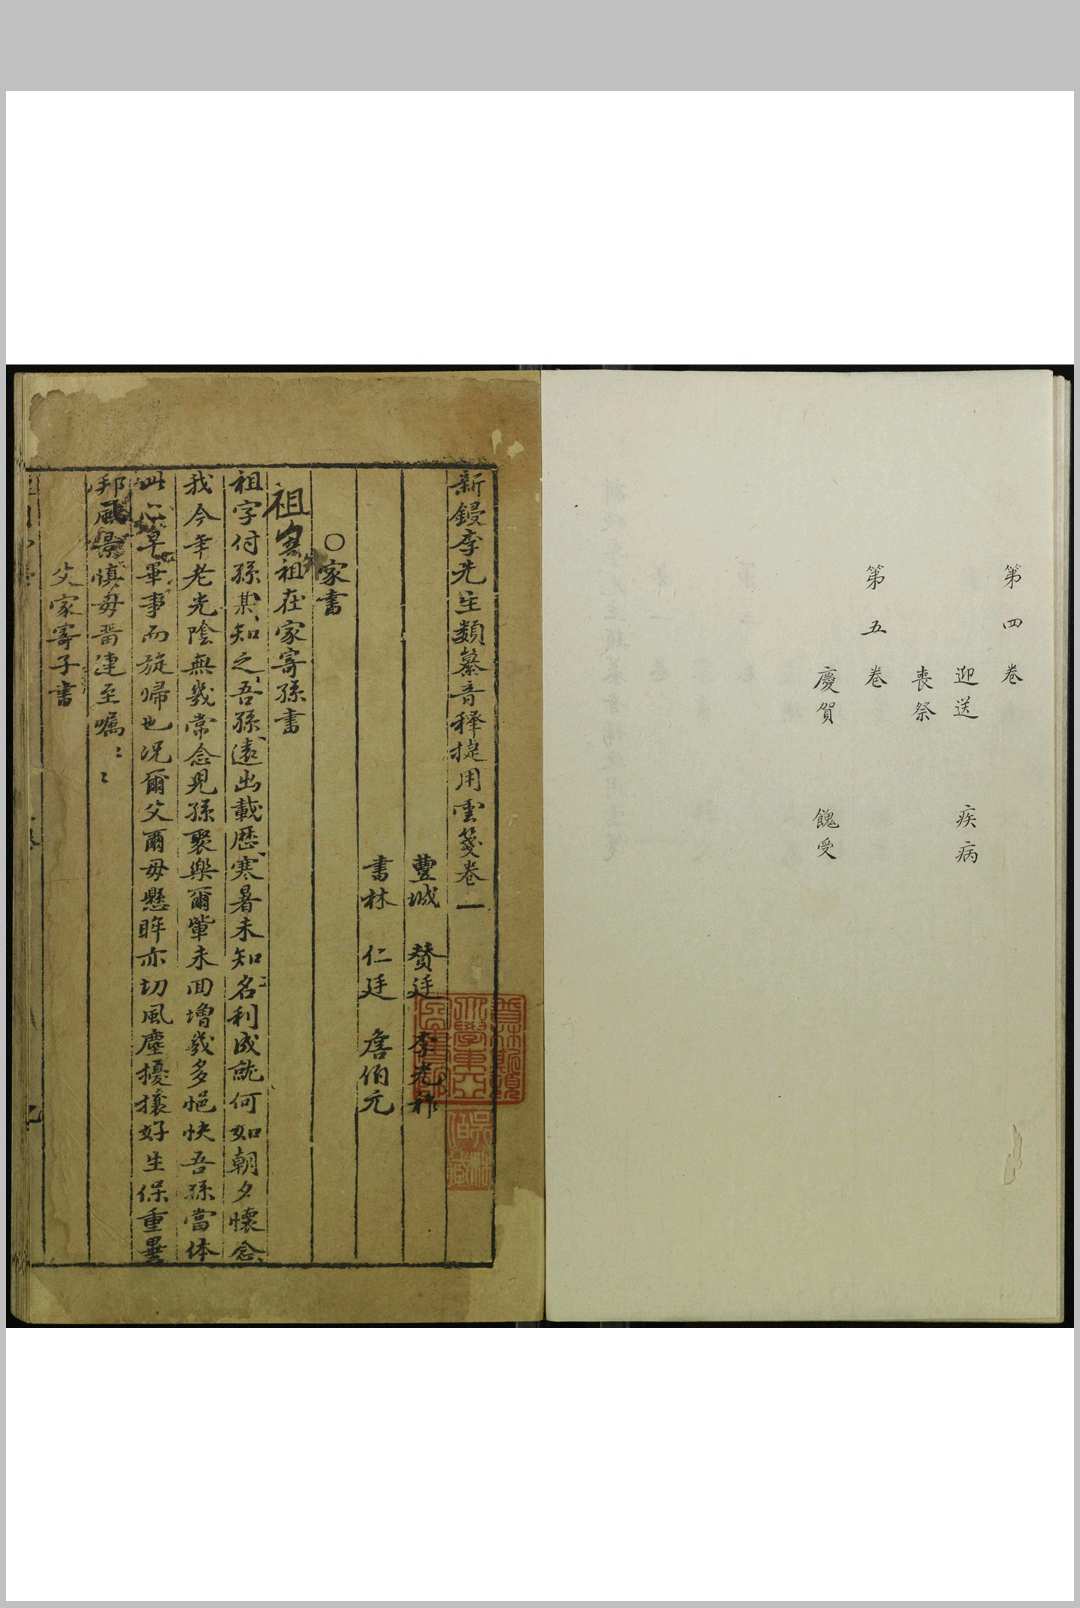 第四卷
迎送 疾病
喪祭
第五卷
慶賀 餽受
新鋟李先生類纂音釋捷用雲箋卷一
豐城 賛廷 李光祚
書林 仁廷 詹伯元
○家書
祖在家寄孫書
祖字付孫某知之吾孫遠出載歷寒暑未知名利成就何如朝夕懷念
我今年老光陰無幾常念兒孫聚樂爾輩未囬增幾多悒怏吾孫當体
此心早畢事而旋歸也况爾父爾毋懸眸亦切風塵擾攘好生保重異
邦風景慎毋畱連至囑:ミ
父家寄子書